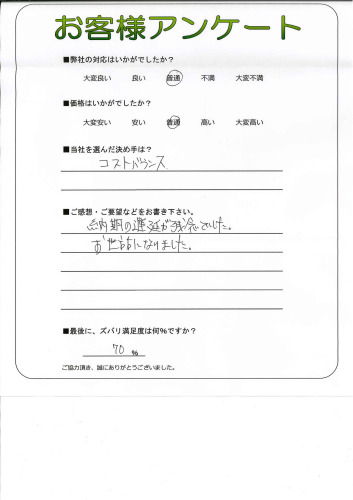 お客様アンケート
■弊社の対応はいかがでしたか?
大変良い 良い 普通 不満 大変不満
■価格はいかがでしたか?
大変安い 安い 普通 高い 大変高い
■当社を選んだ決め手は?
コストバランス
■ご感想・ご要望などをお書き下さい。
納期の遅延が残念でした。
お世話になりました。
■最後に、ズバリ満足度は何%ですか?
70 %
ご協力頂き、誠にありがとうございました。